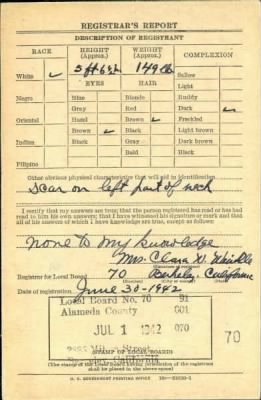 REGISTRAR'S REPORT
DESCRIPTION OF REGISTRANT
RACE HEIGHT (Approx.) WEIGHT (Approx.) COMPLEXION
White ✓ 5 ft 6 1/2 149 lb Sallow
EYES HAIR Light
Negro Blue Blonde Ruddy
Gray Red Dark ✓
Oriental Hazel Brown ✓ Freckled
Brown ✓ Black Light brown
Indian Black Gray Dark brown
Bald Black
Filipino
Other obvious physical characteristics that will aid in identification
scar on left part of neck
I certify that my answers are true; that the person registered has read or has had
read to him his own answers; that I have witnessed his signature or mark and that
all of his answers of which I have knowledge are true, except as follows:
None to my knowledge
Mrs. Clara W.
Registrar for Local Board 70 Berkeley California
Date of registration June 30-1942
Local Board No. 70 91
Alameda County 001
JUL 1 1942 070
70
Street
California
(STAMP OF LOCAL BOARD)
(The stamp of the Local Board having jurisdiction of the registrant
shall be placed in the above space)
U. S. GOVERNMENT PRINTING OFFICE